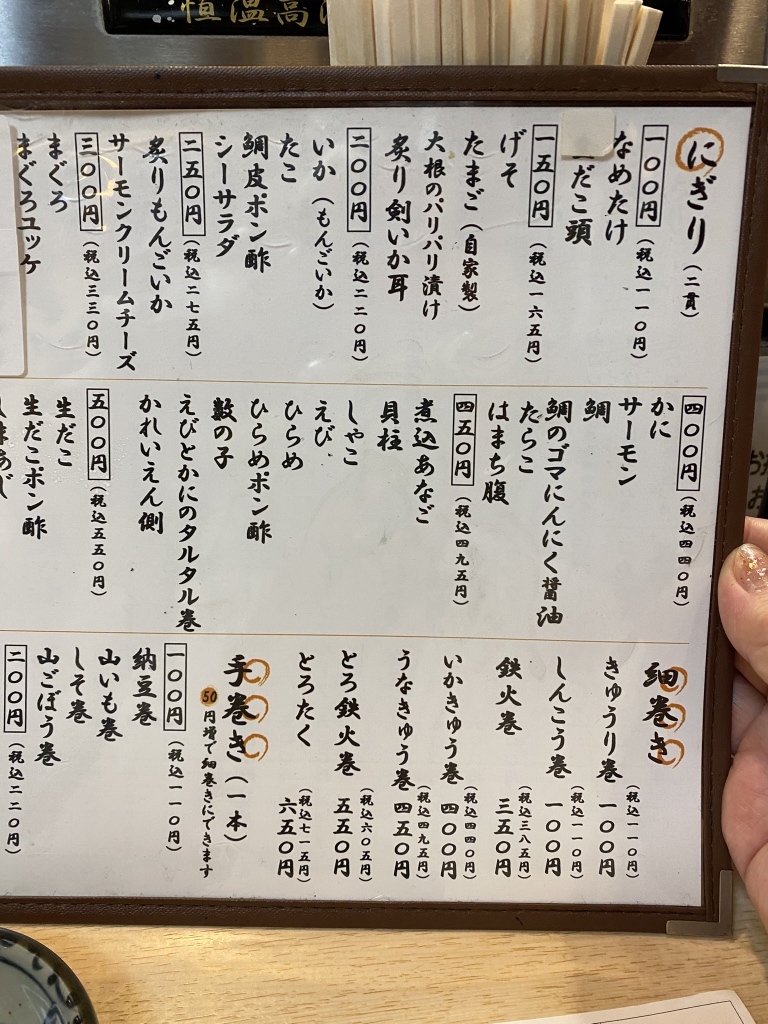 恒温高
にぎり(二貫)
一〇〇円(税込一一〇円)
なめたけ
だこ頭
一五〇円(税込一六五円)
げそ
たまご(自家製)
大根のパリパリ漬け
炙り剣いか耳
二〇〇円(税込二二〇円)
いか(もんごいか)
たこ
鯛皮ポン酢
シーサラダ
二五〇円(税込二七五円)
炙りもんごいか
サーモンクリームチーズ
三〇〇円(税込三三〇円)
まぐろ
まぐろユッケ
四〇〇円(税込四四〇円)
かに
サーモン
鯛
鯛のゴマにんにく醤油
たらこ
はまち腹
四五〇円(税込四九五円)
煮込あなご
貝柱
しゃこ
えび
ひらめ
ひらめポン酢
数の子
えびとかにのタルタル巻
かれいえん側
五〇〇円(税込五五〇円)
生だこ
生だこポン酢
細巻き
きゅうり巻 一〇〇円(税込一一〇円)
しんこう巻 一〇〇円(税込一一〇円)
鉄火巻 三五〇円(税込三八五円)
いかきゅう巻 四〇〇円(税込四四〇円)
うなきゅう巻 四五〇円(税込四九五円)
とろ鉄火巻 五五〇円(税込六〇五円)
とろたく 六五〇円(税込七一五円)
手巻き(一本)
50円増で細巻きにできます
一〇〇円(税込一一〇円)
納豆巻
山いも巻
しそ巻
山ごぼう巻
二〇〇円(税込二二〇円)